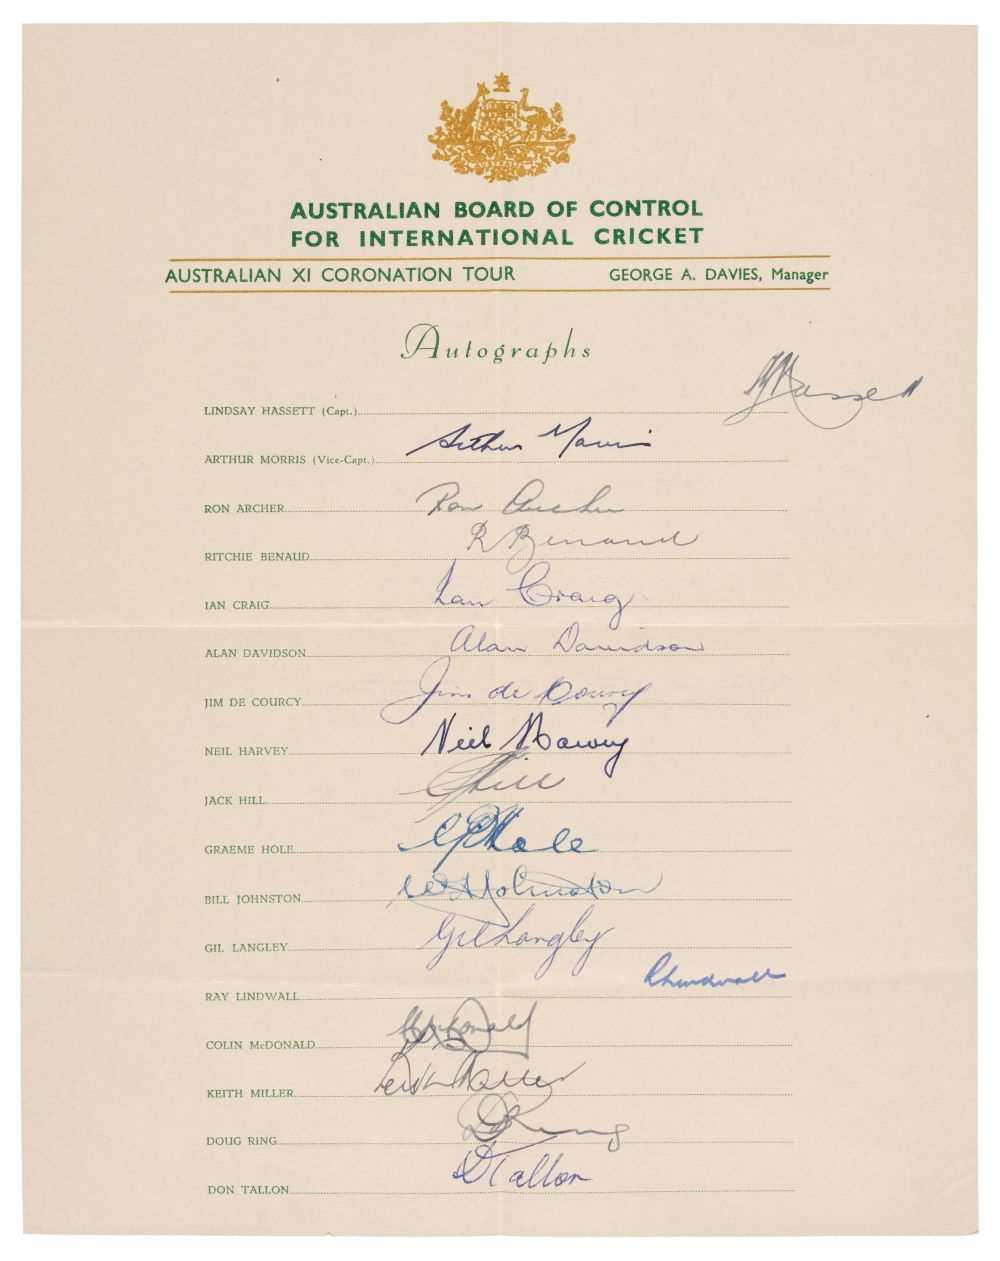 AUSTRALIA
AUSTRALIAN BOARD OF CONTROL
FOR INTERNATIONAL CRICKET
AUSTRALIAN XI CORONATION TOUR GEORGE A. DAVIES, Manager
Autographs
LINDSAY HASSETT (Capt.) Hassett
ARTHUR MORRIS (Vice-Capt.) Arthur Morris
RON ARCHER Ron Archer
RITCHIE BENAUD R Benaud
IAN CRAIG Ian Craig
ALAN DAVIDSON Alan Davidson
JIM DE COURCY Jim de Courcy
NEIL HARVEY Neil Harvey
JACK HILL Hill
GRAEME HOLE G Hole
BILL JOHNSTON W Johnston
GIL LANGLEY Gil Langley
RAY LINDWALL R Lindwall
COLIN McDONALD McDonald
KEITH MILLER Keith Miller
DOUG RING D Ring
DON TALLON D Tallon